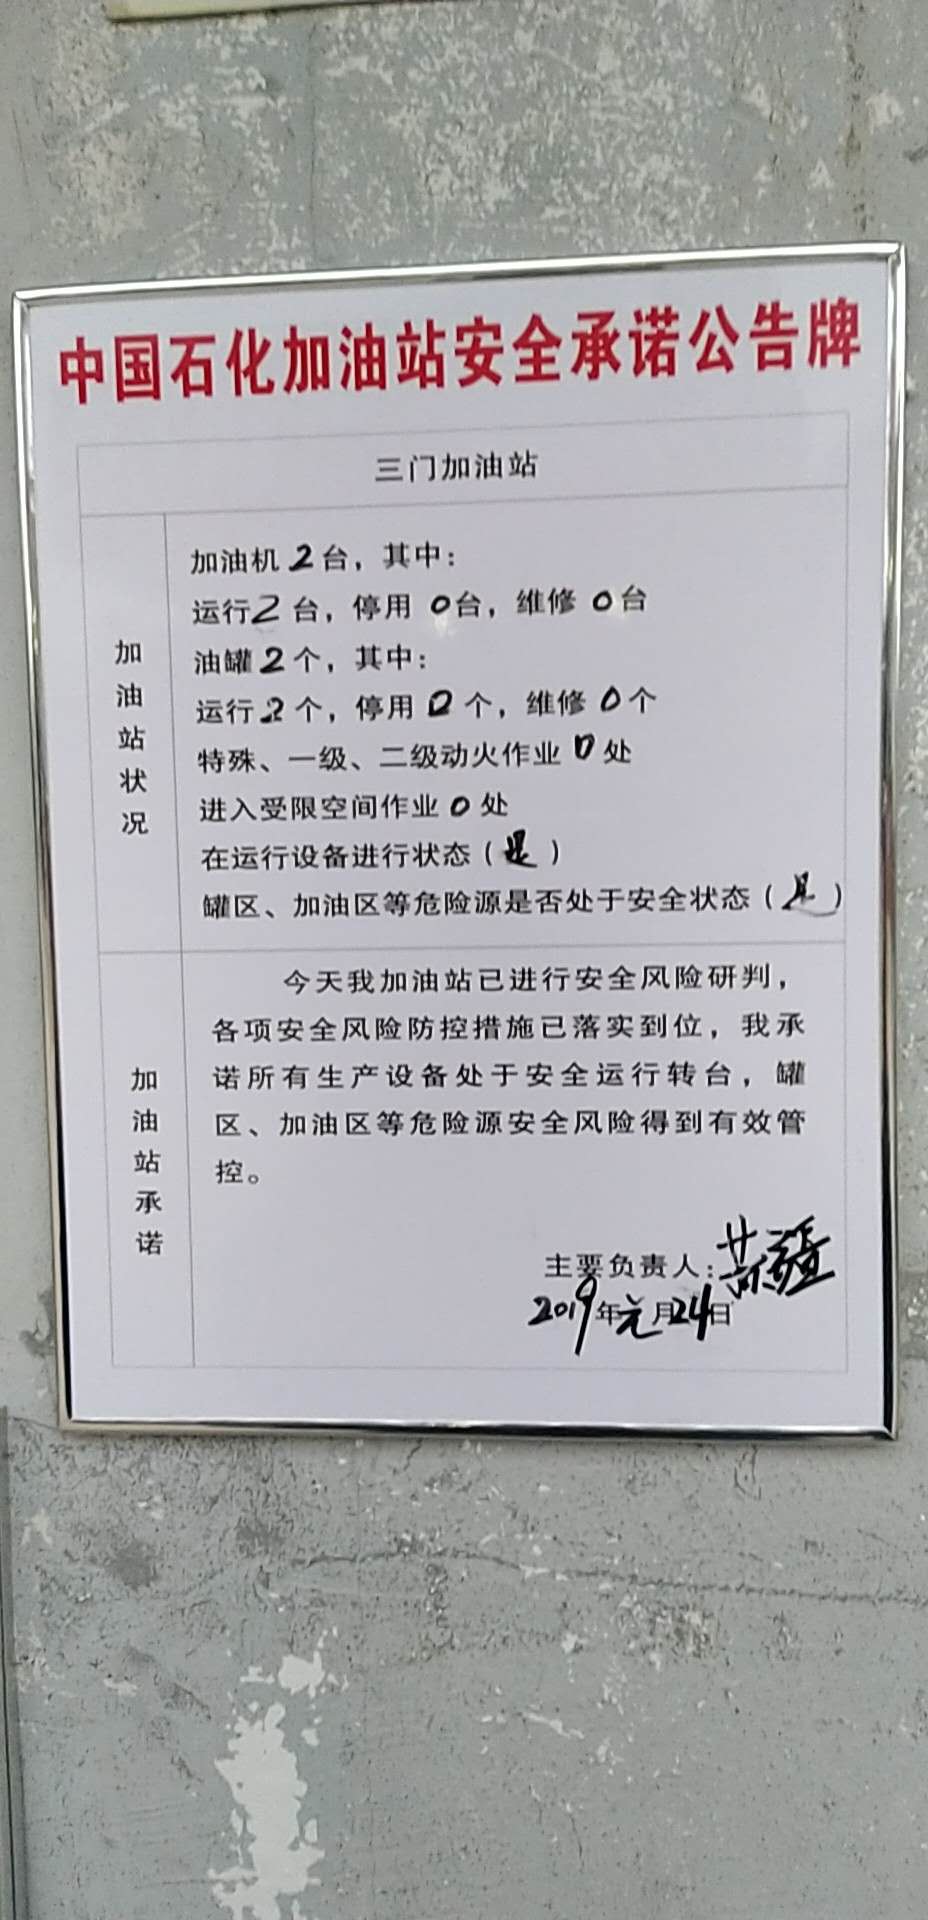 中国石化加油站安全承诺公告牌
三门加油站
加油站状况
加油机 2 台，其中：
运行 2 台，停用 0 台，维修 0 台
油罐 2 个，其中：
运行 2 个，停用 0 个，维修 0 个
特殊、一级、二级动火作业 0 处
进入受限空间作业 0 处
在运行设备进行状态（是）
罐区、加油区等危险源是否处于安全状态（是）
加油站承诺
今天我加油站已进行安全风险研判，
各项安全风险防控措施已落实到位，我承
诺所有生产设备处于安全运行转台，罐
区、加油区等危险源安全风险得到有效管
控。
主要负责人：
2019年元月24日